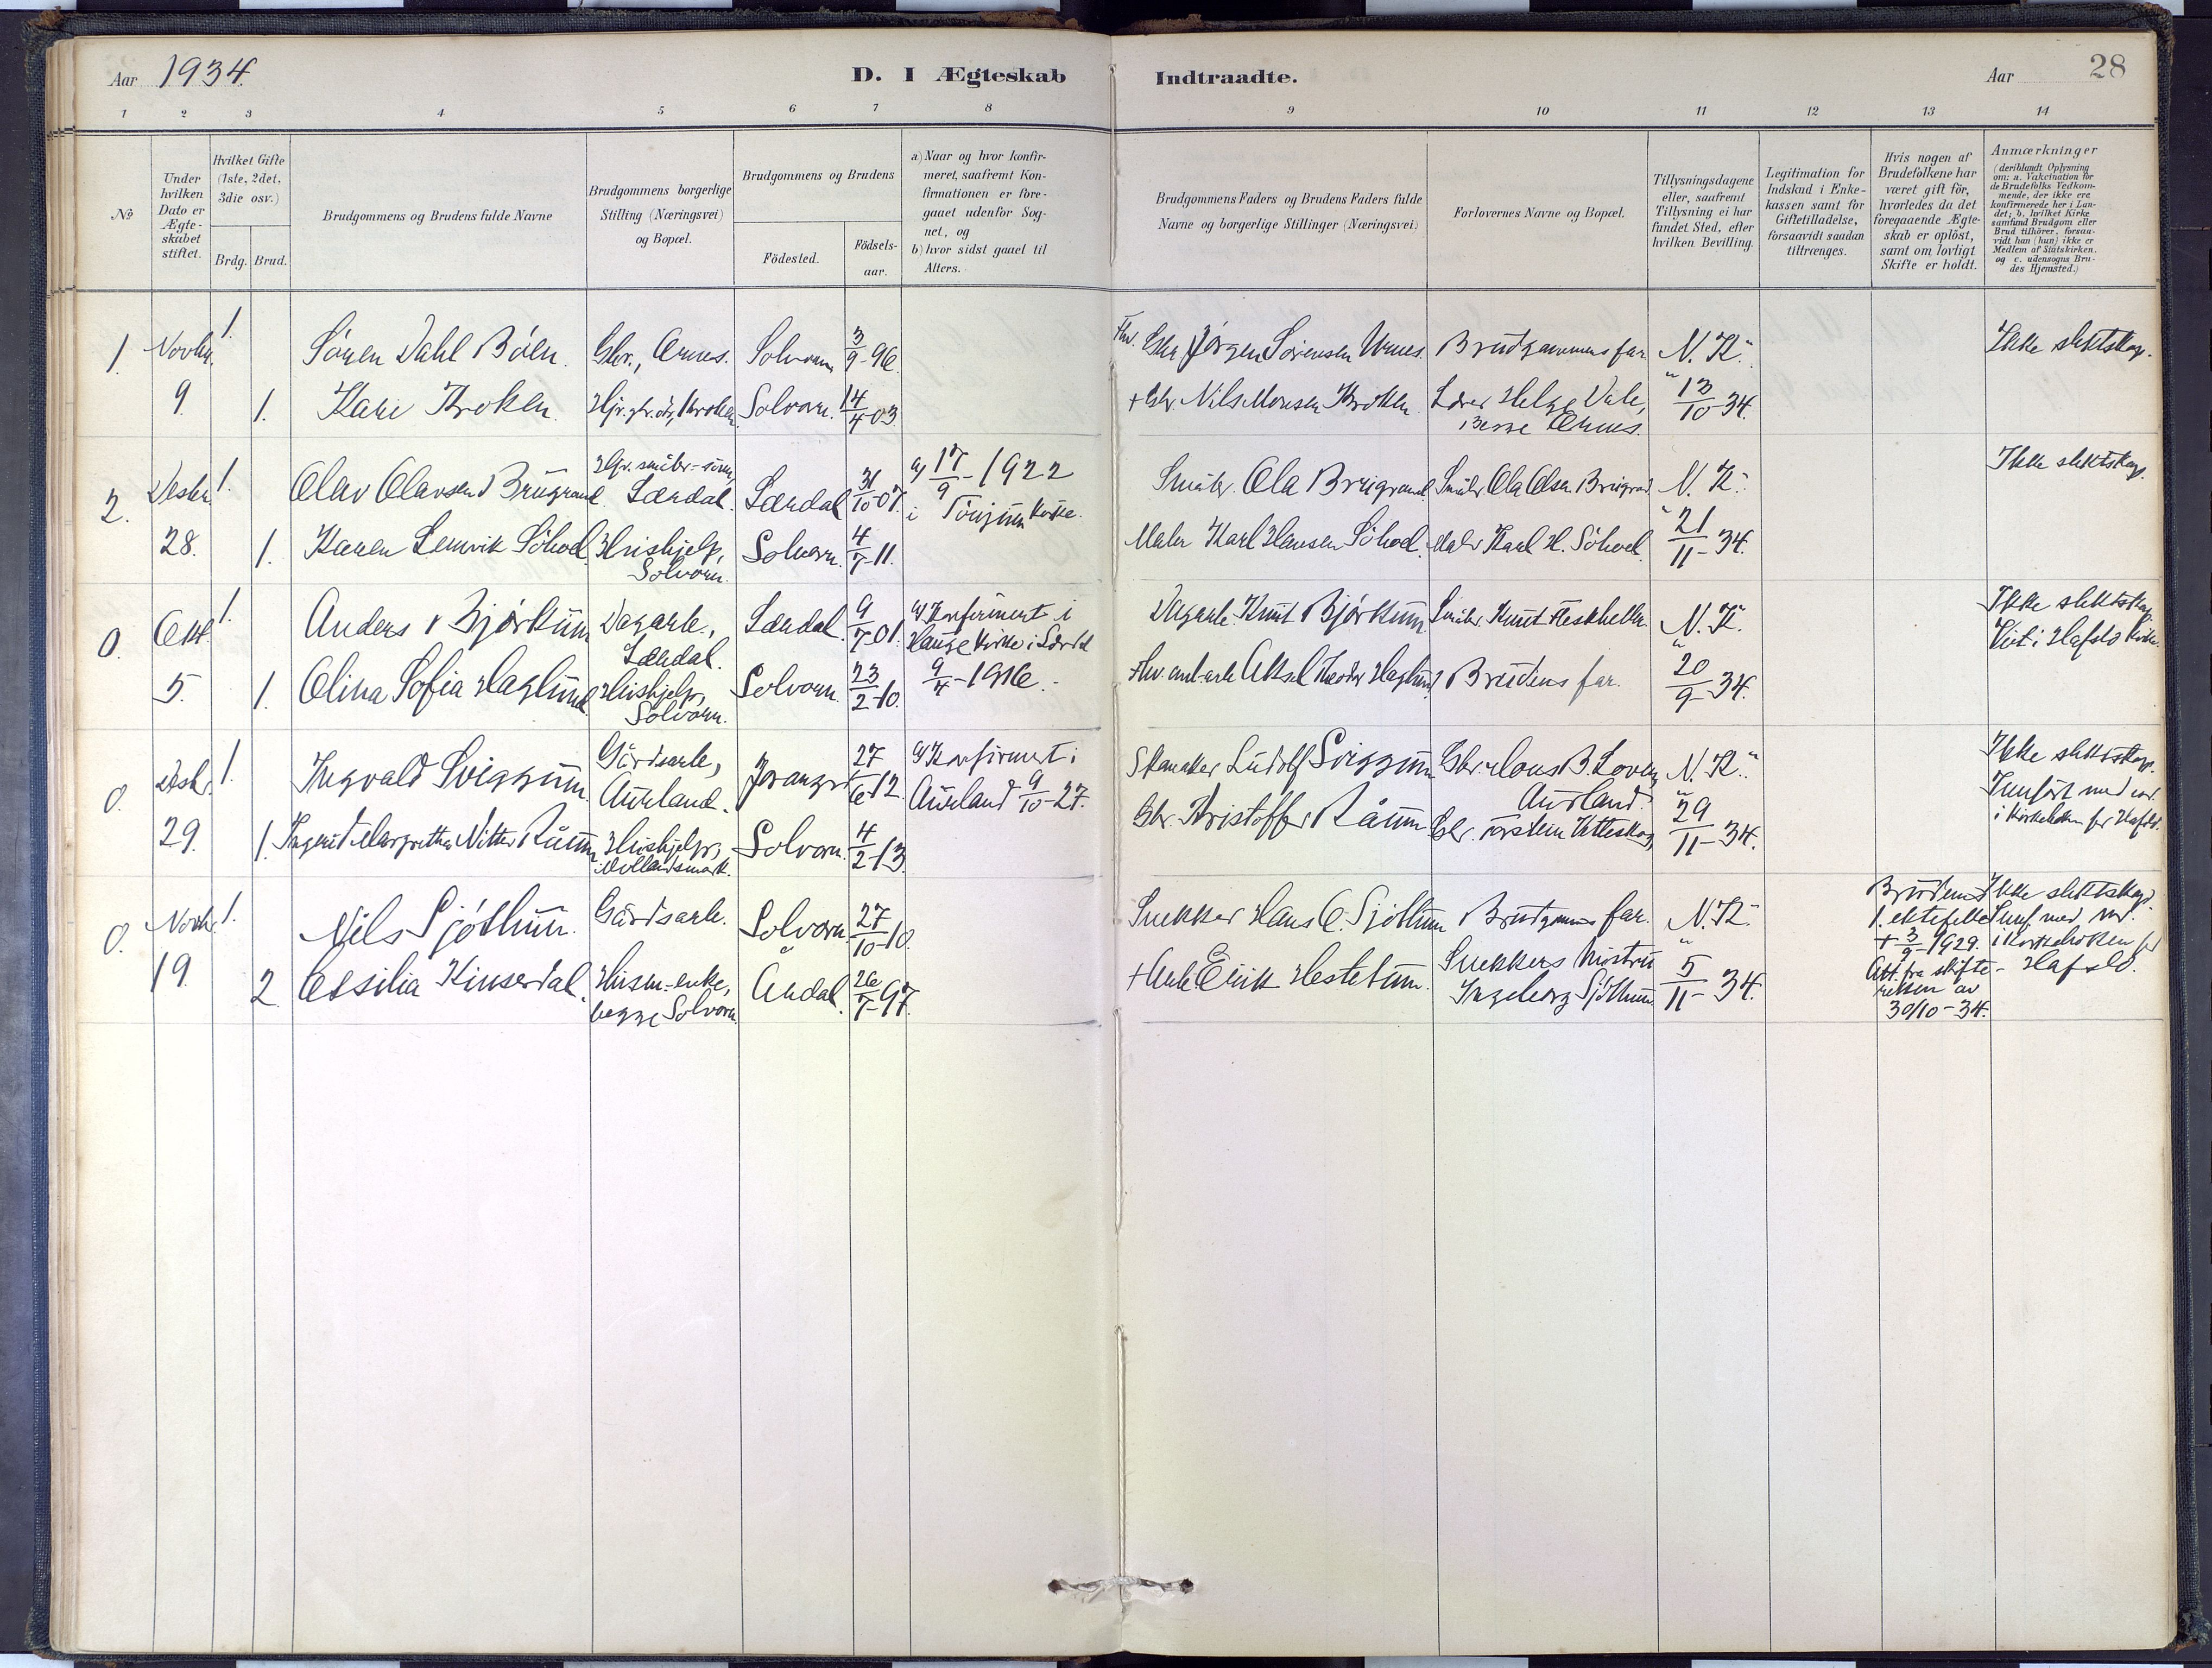 Aar 1934. D. I Ægteskab Indtraadte. Aar 28
1 2 3 4 5 6 7 8 9 10 11 12 13 14
№
Under hvilken Dato er Ægteskabet stiftet.
Hvilket Gifte (1ste, 2det, 3die osv.)
Brdg. Brud.
Brudgommens og Brudens fulde Navne
Brudgommens borgerlige Stilling (Næringsvei) og Bopæl.
Brudgommens og Brudens
Födested. Födselsaar.
a) Naar og hvor konfirmeret, saafremt Konfirmationen er foregaaet udenfor Sognet, og
b) hvor sidst gaaet til Alters.
Brudgommens Faders og Brudens Faders fulde Navne og borgerlige Stillinger (Næringsvei)
Forlovernes Navne og Bopæl.
Tillysningsdagene eller, saafremt Tillysning ei har fundet Sted, efter hvilken Bevilling.
Legitimation for Indskud i Enkekassen samt for Giftetilladelse, forsaavidt saadan tiltrænges.
Hvis nogen af Brudefolkene har været gift för, hvorledes da det foregaaende Ægteskab er oplöst, samt om lovligt Skifte er holdt.
Anmærkninger
(deriblandt Oplysning om: a. Vakcination for de Brudefolks Vedkommende, der ikke ere konfirmerede her i Landet; b. hvilket Kirkesamfund Brudgom eller Brud tilhörer, forsaavidt han (hun) ikke er Medlem af Statskirken. og c. udensogns Brudes Hjemsted.)
1. Novbr. 1. Sören Dahl Böen. Gbr., Ornes. Solvorn 3/9-96. Fhv. Gbr. Jörgen Sörensen Urnes. Brudgommens far N. K. Ikke slektskap.
9. 1. Kari Kroken. Solvorn. 14/4-03. + Gbr. Nils Monsen Kroken. Lærer Helge Dale, 13/10-34.
begge Ornes.
2. Desbr. 1. Olav Olavsen Brugrand. Lærdal. Lærdal 31/10-07. a) 17/9-1922 Småbr. Ola Brugrand. Småbr. Ola Olsen Brugrand N. K. Ikke slektskap.
i Tönjum kirke.
28. 1. Karen Lemvik Söhoel Hushjelp, Solvorn. Solvorn. 4/7-11. Maler Karl Hansen Söhoel. Maler Karl H. Söhoel. 21/11-34.
0. Okt. 1. Anders Björkum Vegarb., Lærdal. Lærdal. 9/7-01. a) Konfirmert i Hauge kirke i Lærdal Vegarb. Knut Björkum. Småbr. Knut N. K. Ikke slektskap.
Viet i Hafslo kirke.
5. 1. Olina Sofia Haglund Hushjelp, Solvorn. Solvorn. 23/2-10. 9/4-1916. Fhv. Aksel Teodor Haglund Brudens far. 20/9-34.
0. Desbr. 1. Ingvald Sviggum. Gårdsarb., Aurland. Joranger 27/6-12. a) Konfirmert i Aurland 9/10-27. Skomaker Ludolf Sviggum Gbr. Hans B. Loven, Aurland. N. K. Ikke slektskap.
Innfört med nr. i kirkeboken for Hafslo.
29. 1. Ingerid Margrethe Nitter Råum Hushjelp, Mollandsmark. Solvorn. 4/2-13. Gbr. Kristoffer Råum. Gbr. Torstein 29/11-34.
0. Novbr. 1. Nils Sjöthun. Gårdsarb. Solvorn 27/10-10. Snekker Hans O. Sjöthun Brudgommens far. N. K. Brudens 1. ektefelle + 3/9-1929. Att. fra skifteretten av 30/10-34. Ikke slektskap. Innf. med nr. i kirkeboken for Hafslo.
19. 2 Cesilia Kinserdal. Husm.-enke, begge Solvorn. Årdal. 26/7-97. + Arb. Eirik Hestetun. Snekkers hustru Ingeborg Sjöthun. 5/11-34.